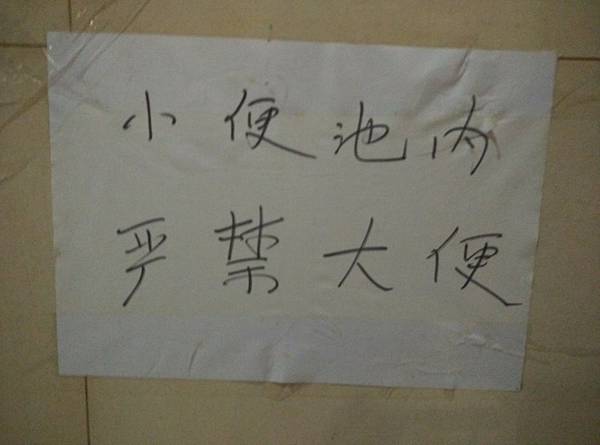 小便池内
严禁大便